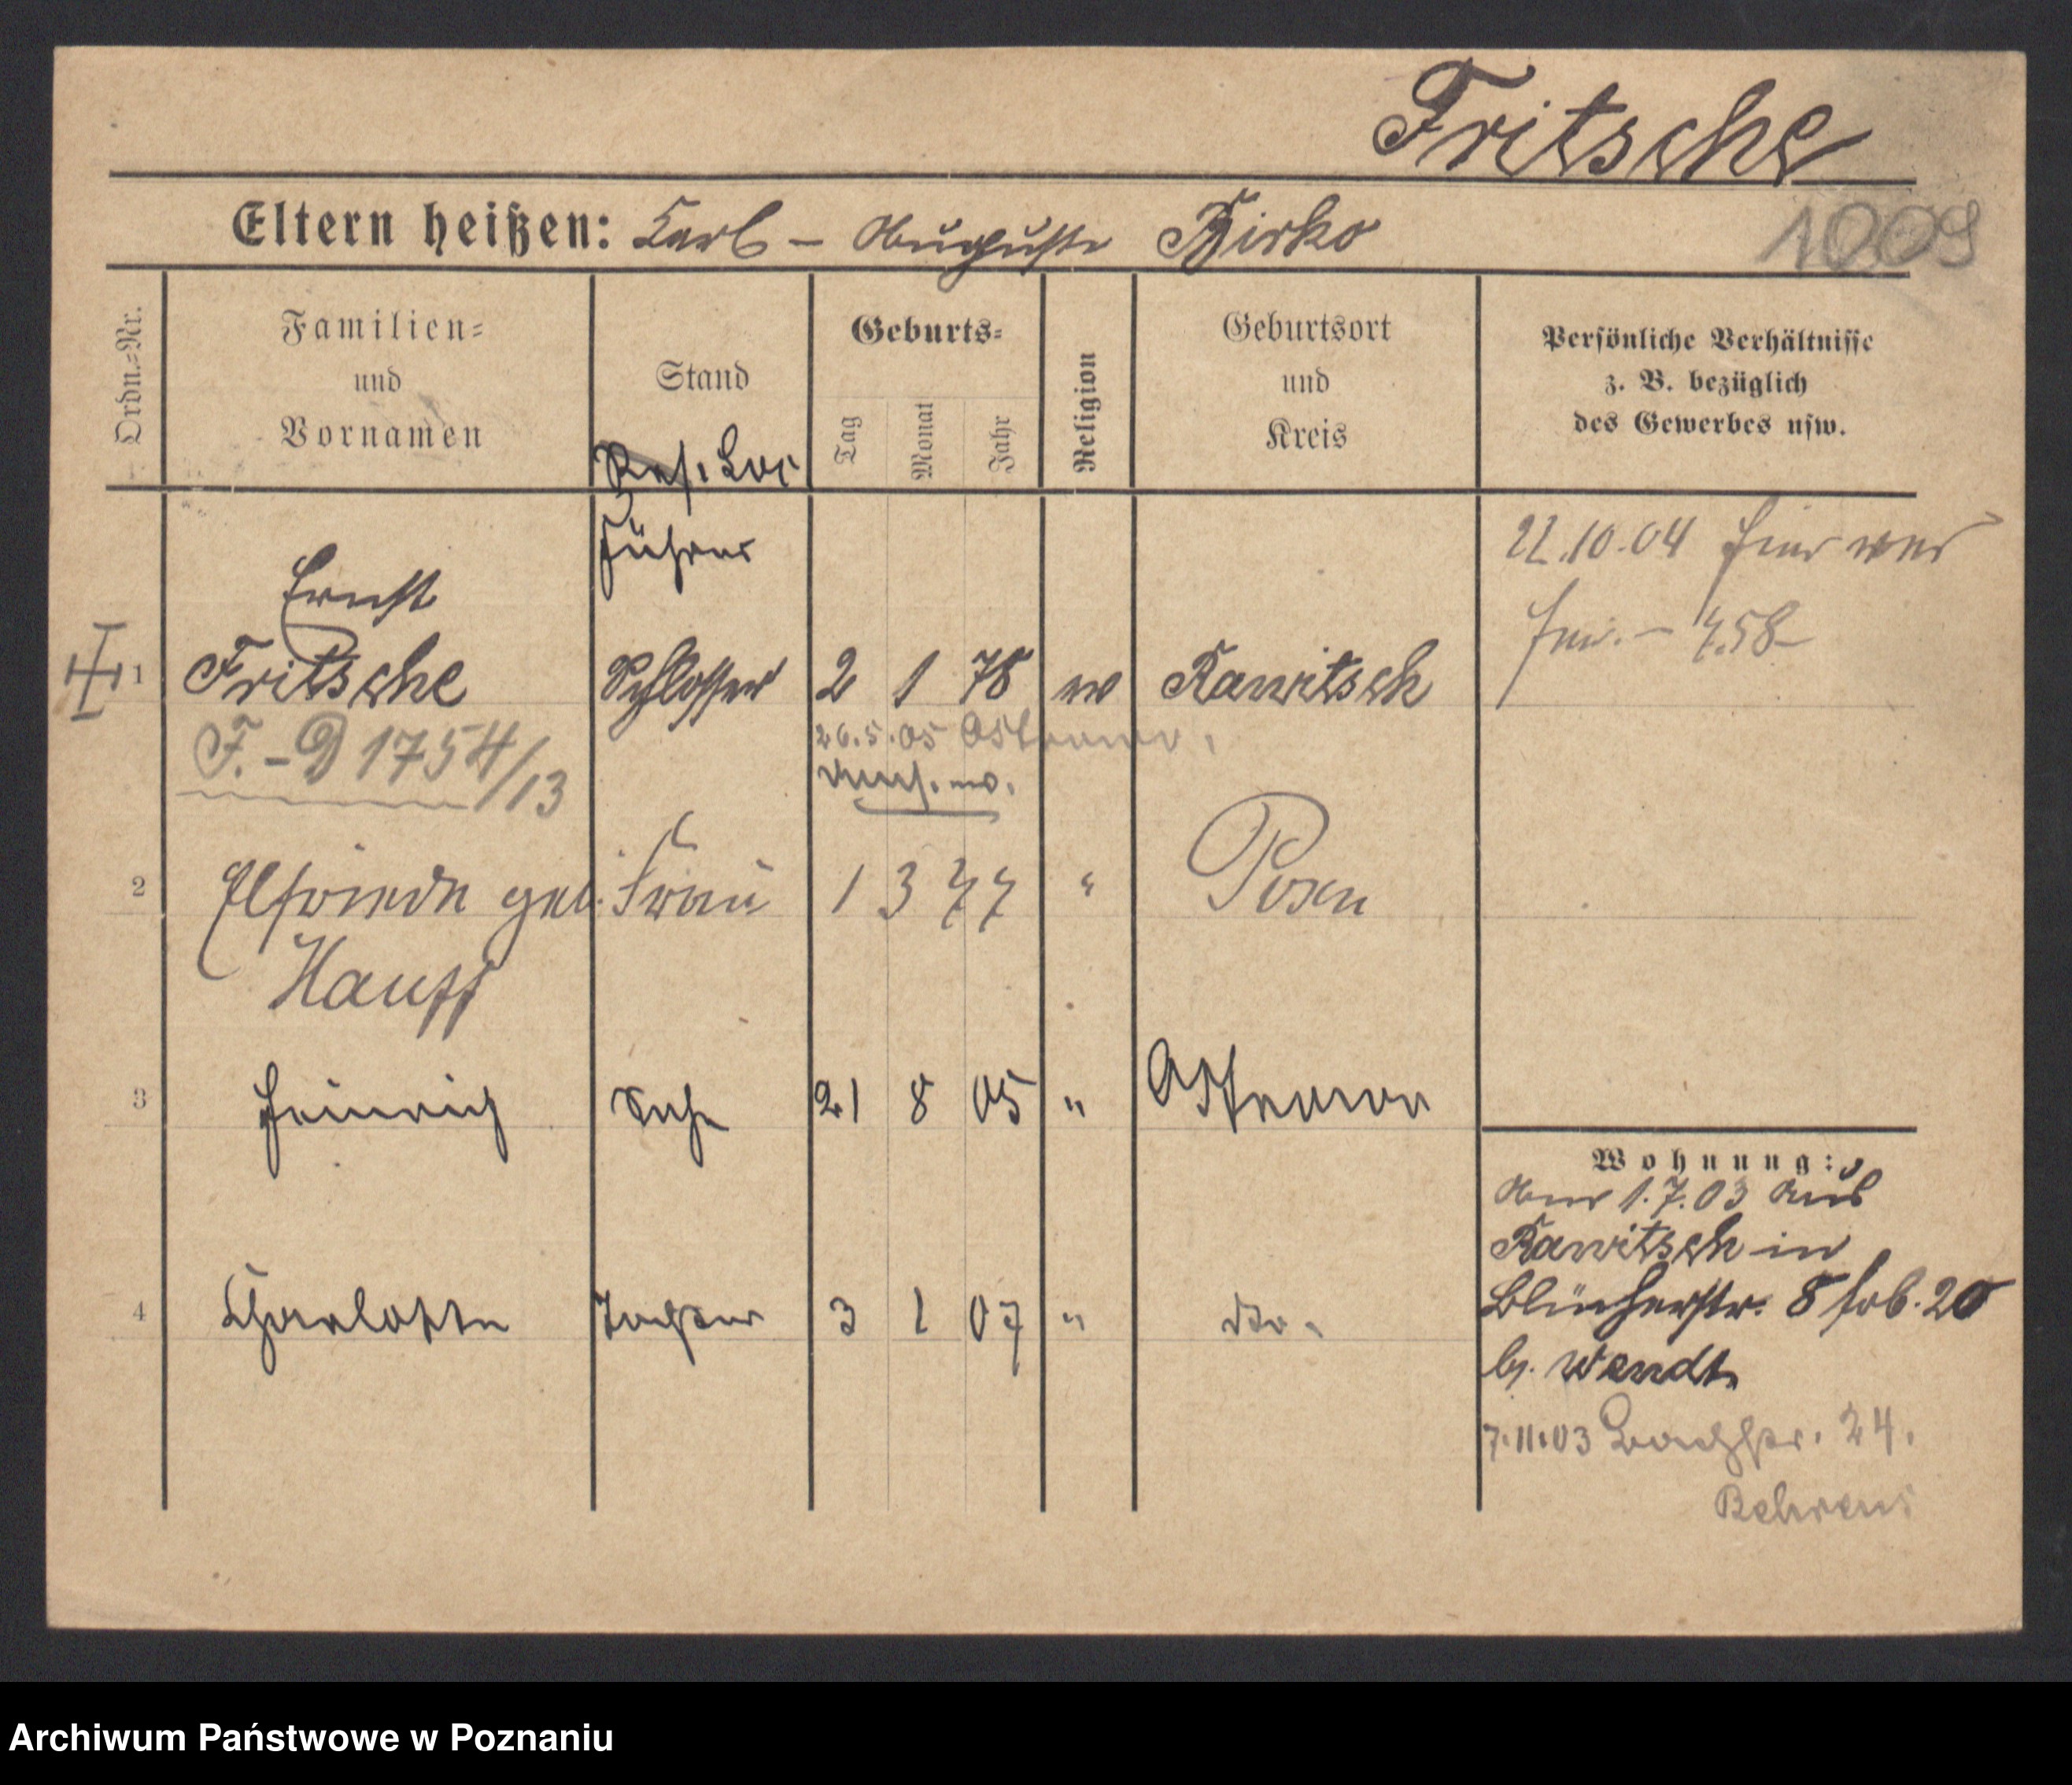 Fritsche
Eltern heißen: Carl – Auguste Birko
1009
Ordn.-Nr.
Familien-
und
Vornamen
Stand
Geburts-
Tag
Monat
Jahr
Religion
Geburtsort
und
Kreis
Persönliche Verhältnisse
z. B. bezüglich
des Gewerbes usw.
Res. Loc
Führer
22.10.04
Ernst
1 Fritsche Schlosser 2 1 78 ev Rawitsch
758
F.-D 1754/13
26.5.05 Ostrowo.
2 Elfriede geb. Frau 1 3 77 " Posen
Hauff
3 Heinrich Sohn 21 8 05 " Ostrowo
Wohnung:
1.7.03 aus
Rawitsch in
Blücherstr. 8
b. Wendt
4 Charlotte Tochter 3 1 07 " do.
7.11.03 Bachstr. 24.
Behrens
Archiwum Państwowe w Poznaniu